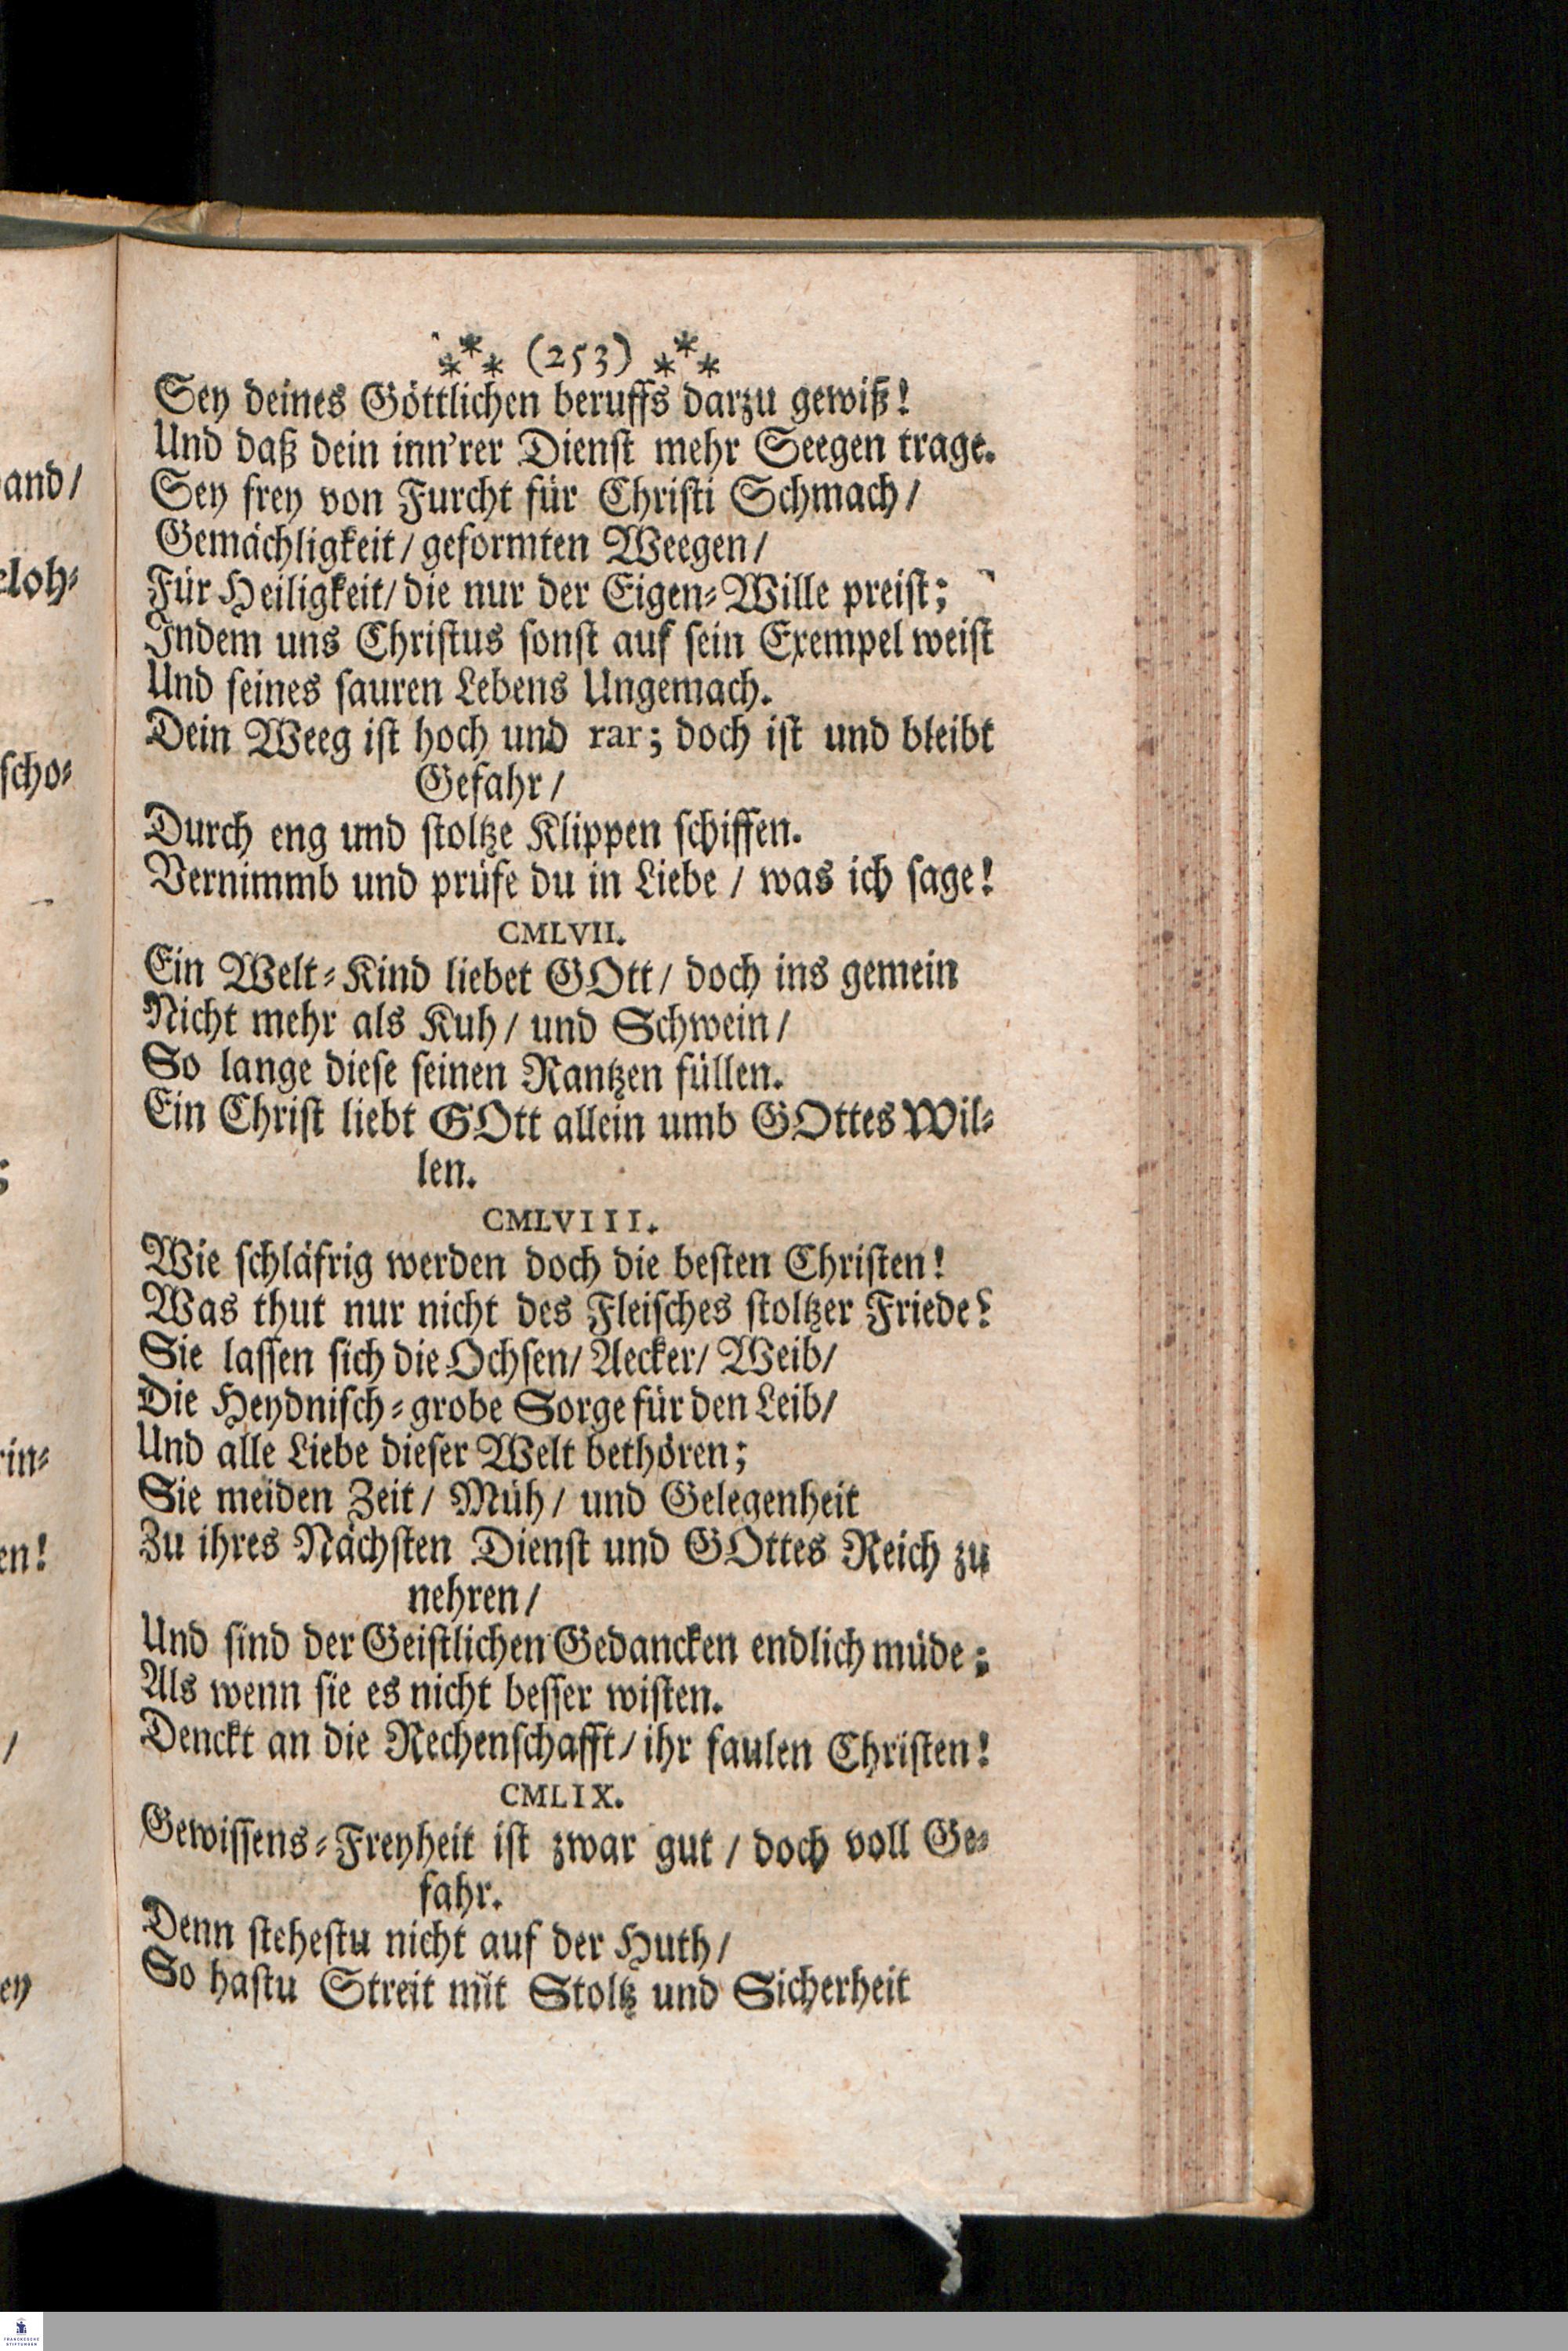 ⁂ (253) ⁂
Sey deines Göttlichen beruffs darzu gewiß!
Und daß dein inn'rer Dienst mehr Seegen trage.
Sey frey von Furcht für Christi Schmach/
Gemächligkeit/ geformten Weegen/
Für Heiligkeit/ die nur der Eigen-Wille preist;
Indem uns Christus sonst auf sein Exempel weist
Und seines sauren Lebens Ungemach.
Dein Weeg ist hoch und rar; doch ist und bleibt
Gefahr/
Durch eng und stoltze Klippen schiffen.
Vernimmb und prüfe du in Liebe / was ich sage!
CMLVII.
Ein Welt-Kind liebet GOtt/ doch ins gemein
Nicht mehr als Kuh/ und Schwein/
So lange diese seinen Rantzen füllen.
Ein Christ liebt GOtt allein umb GOttes Wil-
len.
CMLVIII.
Wie schläfrig werden doch die besten Christen!
Was thut nur nicht des Fleisches stoltzer Friede?
Sie lassen sich die Ochsen/ Aecker/ Weib/
Die Heydnisch-grobe Sorge für den Leib/
Und alle Liebe dieser Welt bethören;
Sie meiden Zeit/ Müh/ und Gelegenheit
Zu ihres Nächsten Dienst und GOttes Reich zu
nehren/
Und sind der Geistlichen Gedancken endlich müde;
Als wenn sie es nicht besser wisten.
Denckt an die Rechenschafft/ ihr faulen Christen!
CMLIX.
Gewissens-Freyheit ist zwar gut / doch voll Ge-
fahr.
Denn stehestu nicht auf der Huth/
So hastu Streit mit Stoltz und Sicherheit
and/
loh-
scho-
;
rin-
en!
/
ey
FRANCKESCHE
STIFTUNGEN